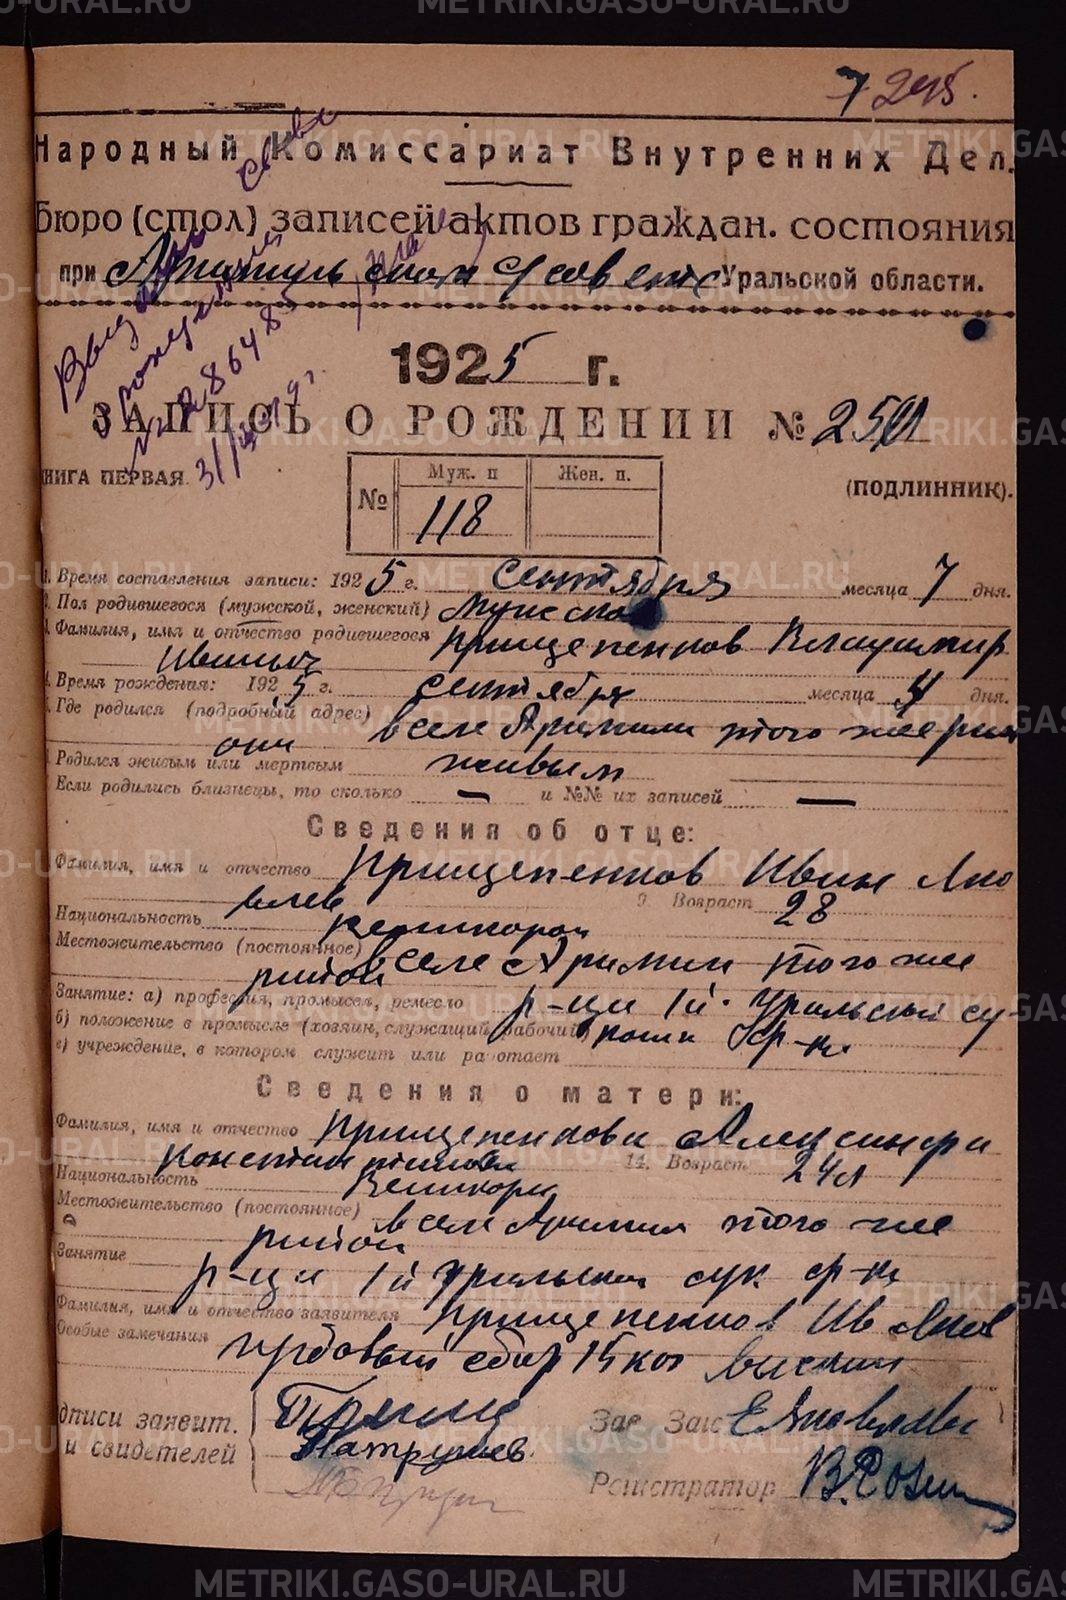 7 245.
Народный Комиссариат Внутренних Дел.
бюро (стол) записей актов граждан. состояния
при Арамильском с/совете Уральской области.
1925 г.
ЗАПИСЬ О РОЖДЕНИИ №
КНИГА ПЕРВАЯ. (ПОДЛИННИК).
№ Муж. п Жен. п.
118
1. Время составления записи: 1925 г. сентября месяца 7 дня.
2. Пол родившегося (мужской, женский) мужской
3. Фамилия, имя и отчество родившегося Прищепенков Владимир
Иваныч
4. Время рождения: 1925 г. сентября месяца 4 дня.
Где родился (подробный адрес) в селе Арамили этого же рай
она
Родился живым или мертвым живым
Если родились близнецы, то сколько — и №№ их записей —
Сведения об отце:
Фамилия, имя и отчество Прищепенков Иван Яко
влев 9. Возраст 28
Национальность великоросс
Местожительство (постоянное) в селе Арамили этого же
района
Занятие: а) профессия, промысел, ремесло р-чи 1й Уральской су-
б) положение в промысле (хозяин, служащий, рабочий) конн ф-ки
в) учреждение, в котором служит или работает
Сведения о матери:
Фамилия, имя и отчество Прищепенкова Александра
Константиновна 14. Возраст 24 л
Национальность Великорос
Местожительство (постоянное) в селе Арамили этого же
района
Занятие р-ца 1й Уральской сук ф-ки
Фамилия, имя и отчество заявителя Прищепенков Ив Яков
Особые замечания гербовый сбор 15 коп взыскан
одписи заявит. Прищ Зав Загс Е Яковлева
и свидетелей Патрушев
Регистратор В.